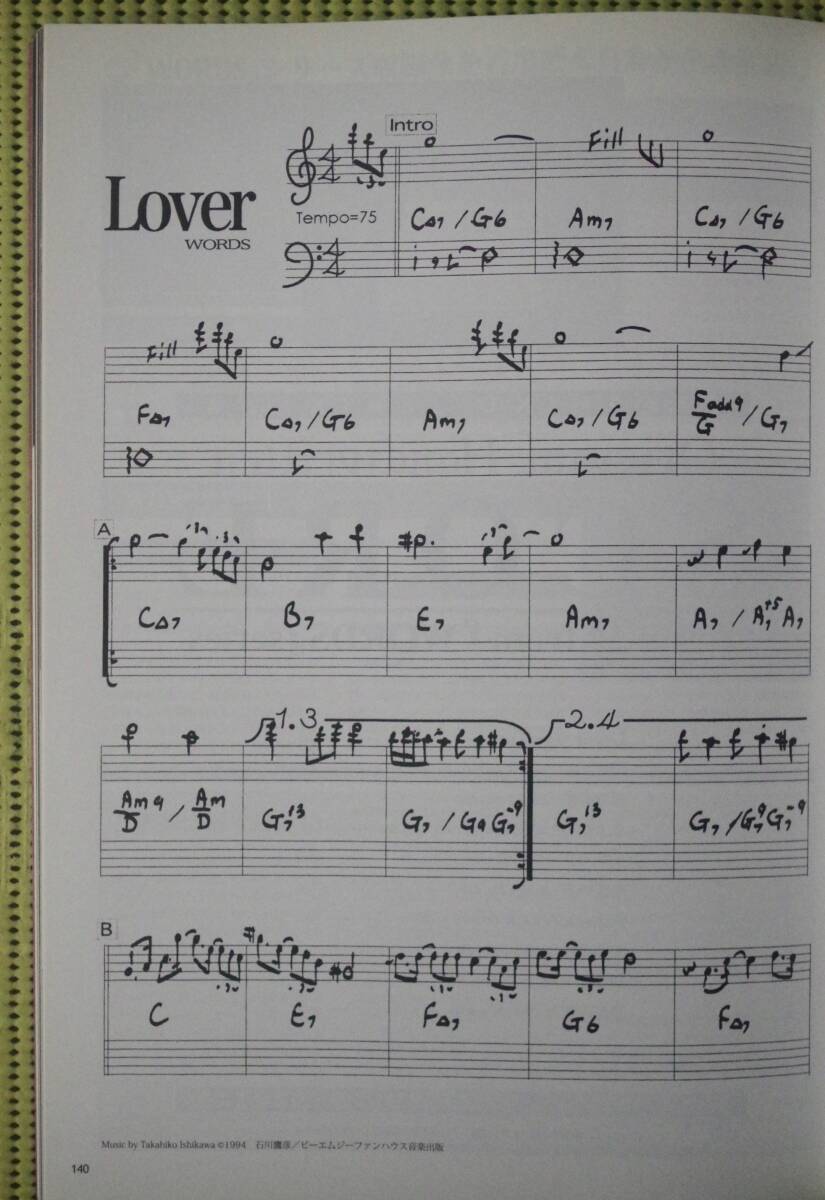 Intro
Fill
Lover
WORDS
Tempo=75
4 4
C△7 / G6 Am7 C△7 / G6
4 4
Fill
F△7 C△7 / G6 Am7 C△7 / G6 Fadd9/G / G7
A
3 3 3
C△7 B7 E7 Am7 A7 / A7+5 A7
1.3 2.4
Am9/D / Am/D G7 13 G7 / G9 G7-9 G7 13 G7 / G7 9 G7-9
B
3 3 3 3 3
C E7 F△7 G6 F△7
Music by Takahiko Ishikawa ©1994 石川鷹彦／ビーエムジーファンハウス音楽出版
140